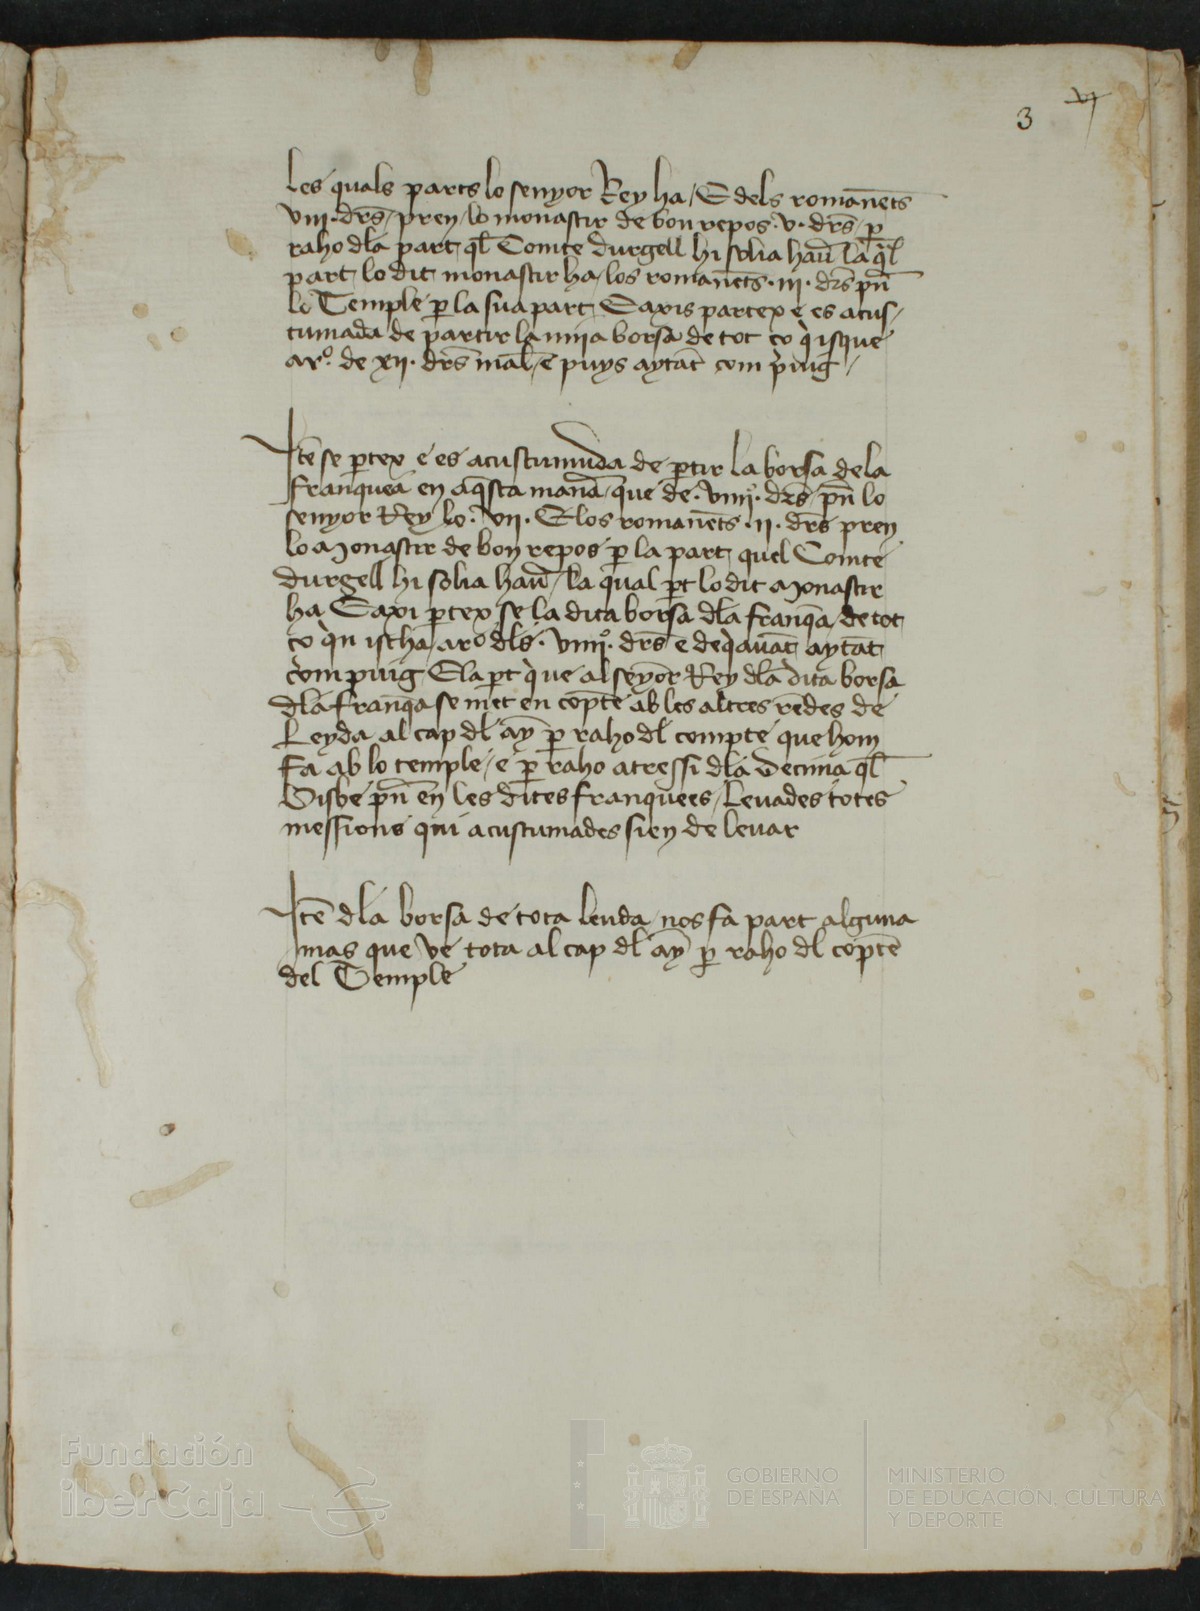 3 vj
les quals parts lo senyor Rey ha / E dels romanẽts
viii · drs̃ / pren / lo monastir de bon repos · v · drs̃ / p̱
raho dl̃a part ql̃ Comte durgell hi solia hau̾ la q̃l
part lo dit monastir ha / los romanẽts · iii · drs̃ pñ
lo Temple p̱ la sua part E axis partex e es acus/
tumada de partir la mija borsa de tot ço q̀ isque
ar.º de xii · drs̃ mal̃ / e puys aytãt com p̀uig /
Itẽ se p̱tex e es acustumada de p̱tir la borsa de la
franquea en aq̃sta manã / que de · viiiiº · drs̃ / pñ lo
senyor Rey lo · vii · E los romanẽts · ii · drs̃ pren
lo Monastir de bon repos p̱ la part quel Comte
durgell hi solia hau̾ / la qual p̱t lo dit Monastir
ha E axi p̱tex se la dita borsa dl̃a franq̃a / de tot
ço q̀n ischa / arº dl̃s · viiiiº · drs̃ e deq̀auãt aytãt
com puig E la p̱t que al seyõr Rey dl̃a dita borsa
dl̃a franq̃a se met en cop̃te ab les altres rẽdes de
Leyda al cap dl̃ ay̾ p̱ raho dl̃ compte que hom
fa ab lo temple / e p̱ raho atressi dl̃a decima ql̃
Bisbe pñ en les dites franquees / Levades totes
messions qui acustumades sien de levar
Itẽ dl̃a borsa de tota lenda / nos fa part alguna
mas que ve tota al cap dl̃ ay̾ p̱ raho dl̃ cop̃te
del Temple
Fundación
iberCaja
GOBIERNO
DE ESPAÑA
MINISTERIO
DE EDUCACIÓN, CULTURA
Y DEPORTE